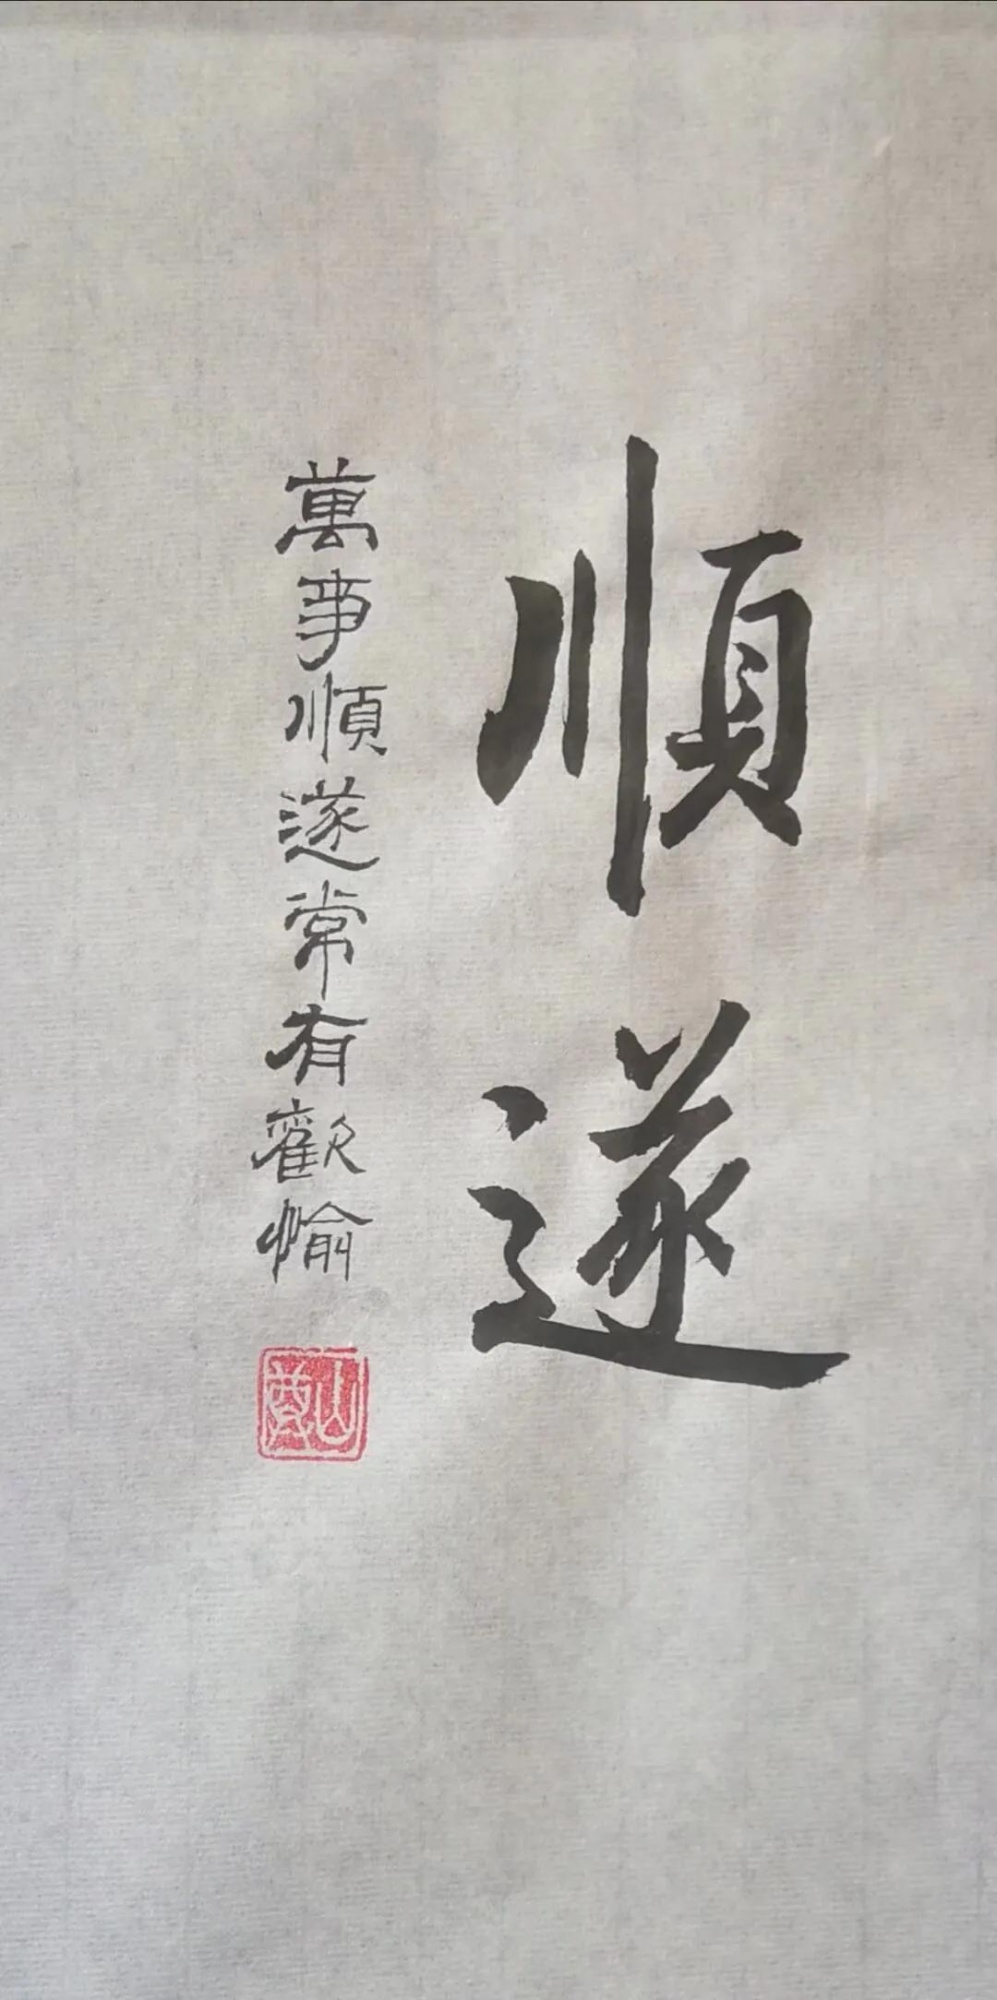 順遂
萬事順遂常有歡愉